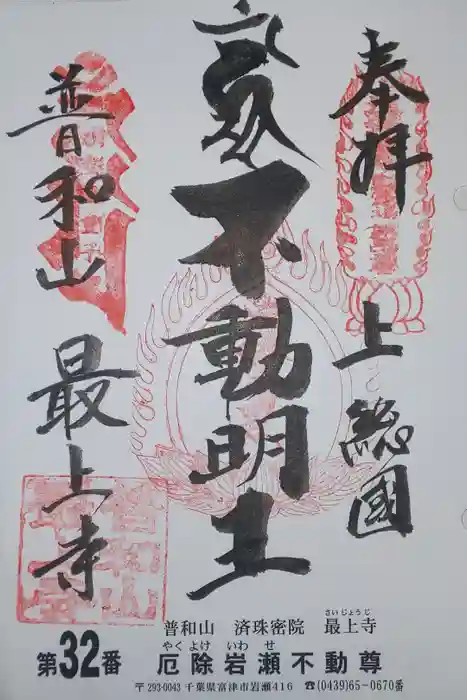 奉拝
上総國
不動明王
普和山
最上寺
普和山 済珠密院 最上寺
さいじょうじ
第32番
やくよけ いわせ
厄除岩瀬不動尊
〒293-0043 千葉県富津市岩瀬416 ☎(0439)65-0670番